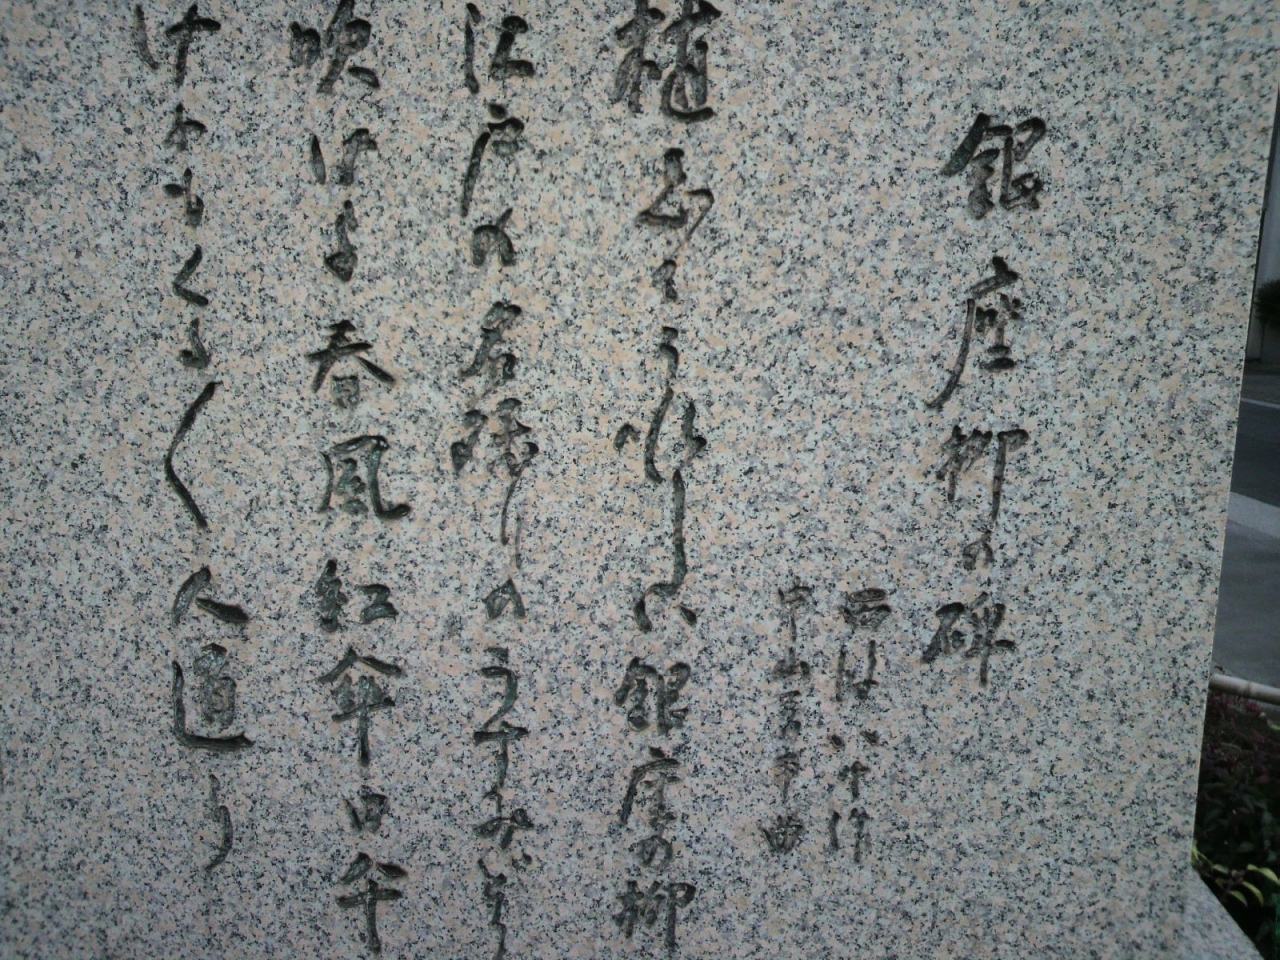 銀座柳の碑
西條八十作
中山晋平曲
植ゑてうれしい銀座の柳
江戸の名残のうすみどり
吹けよ春風紅傘日傘
けふもくる〱人通り